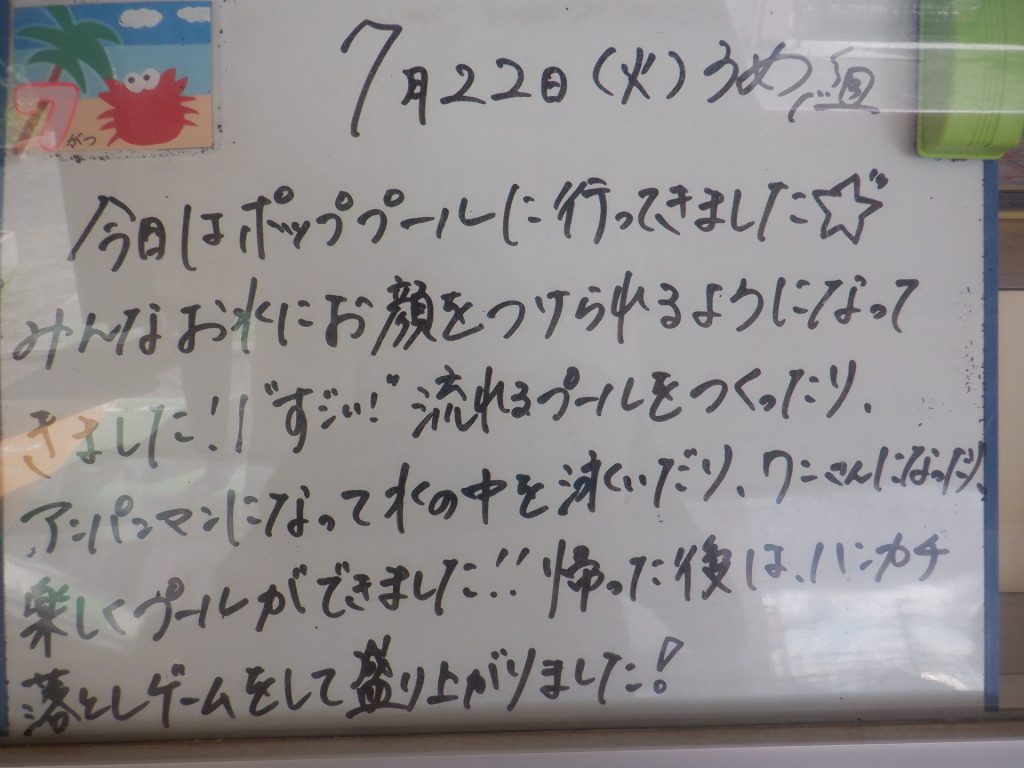 7
がつ
7月22日(火)うめ
今日はポッププールに行ってきました☆
みんなお水にお顔をつけられるようになって
きました!!"すごい!"流れるプールをつくったり、
アンパンマンになって水の中を泳いだり、ワニさんになったり、
楽しくプールができました!!帰った後は、ハンカチ
落としゲームをして盛り上がりました!